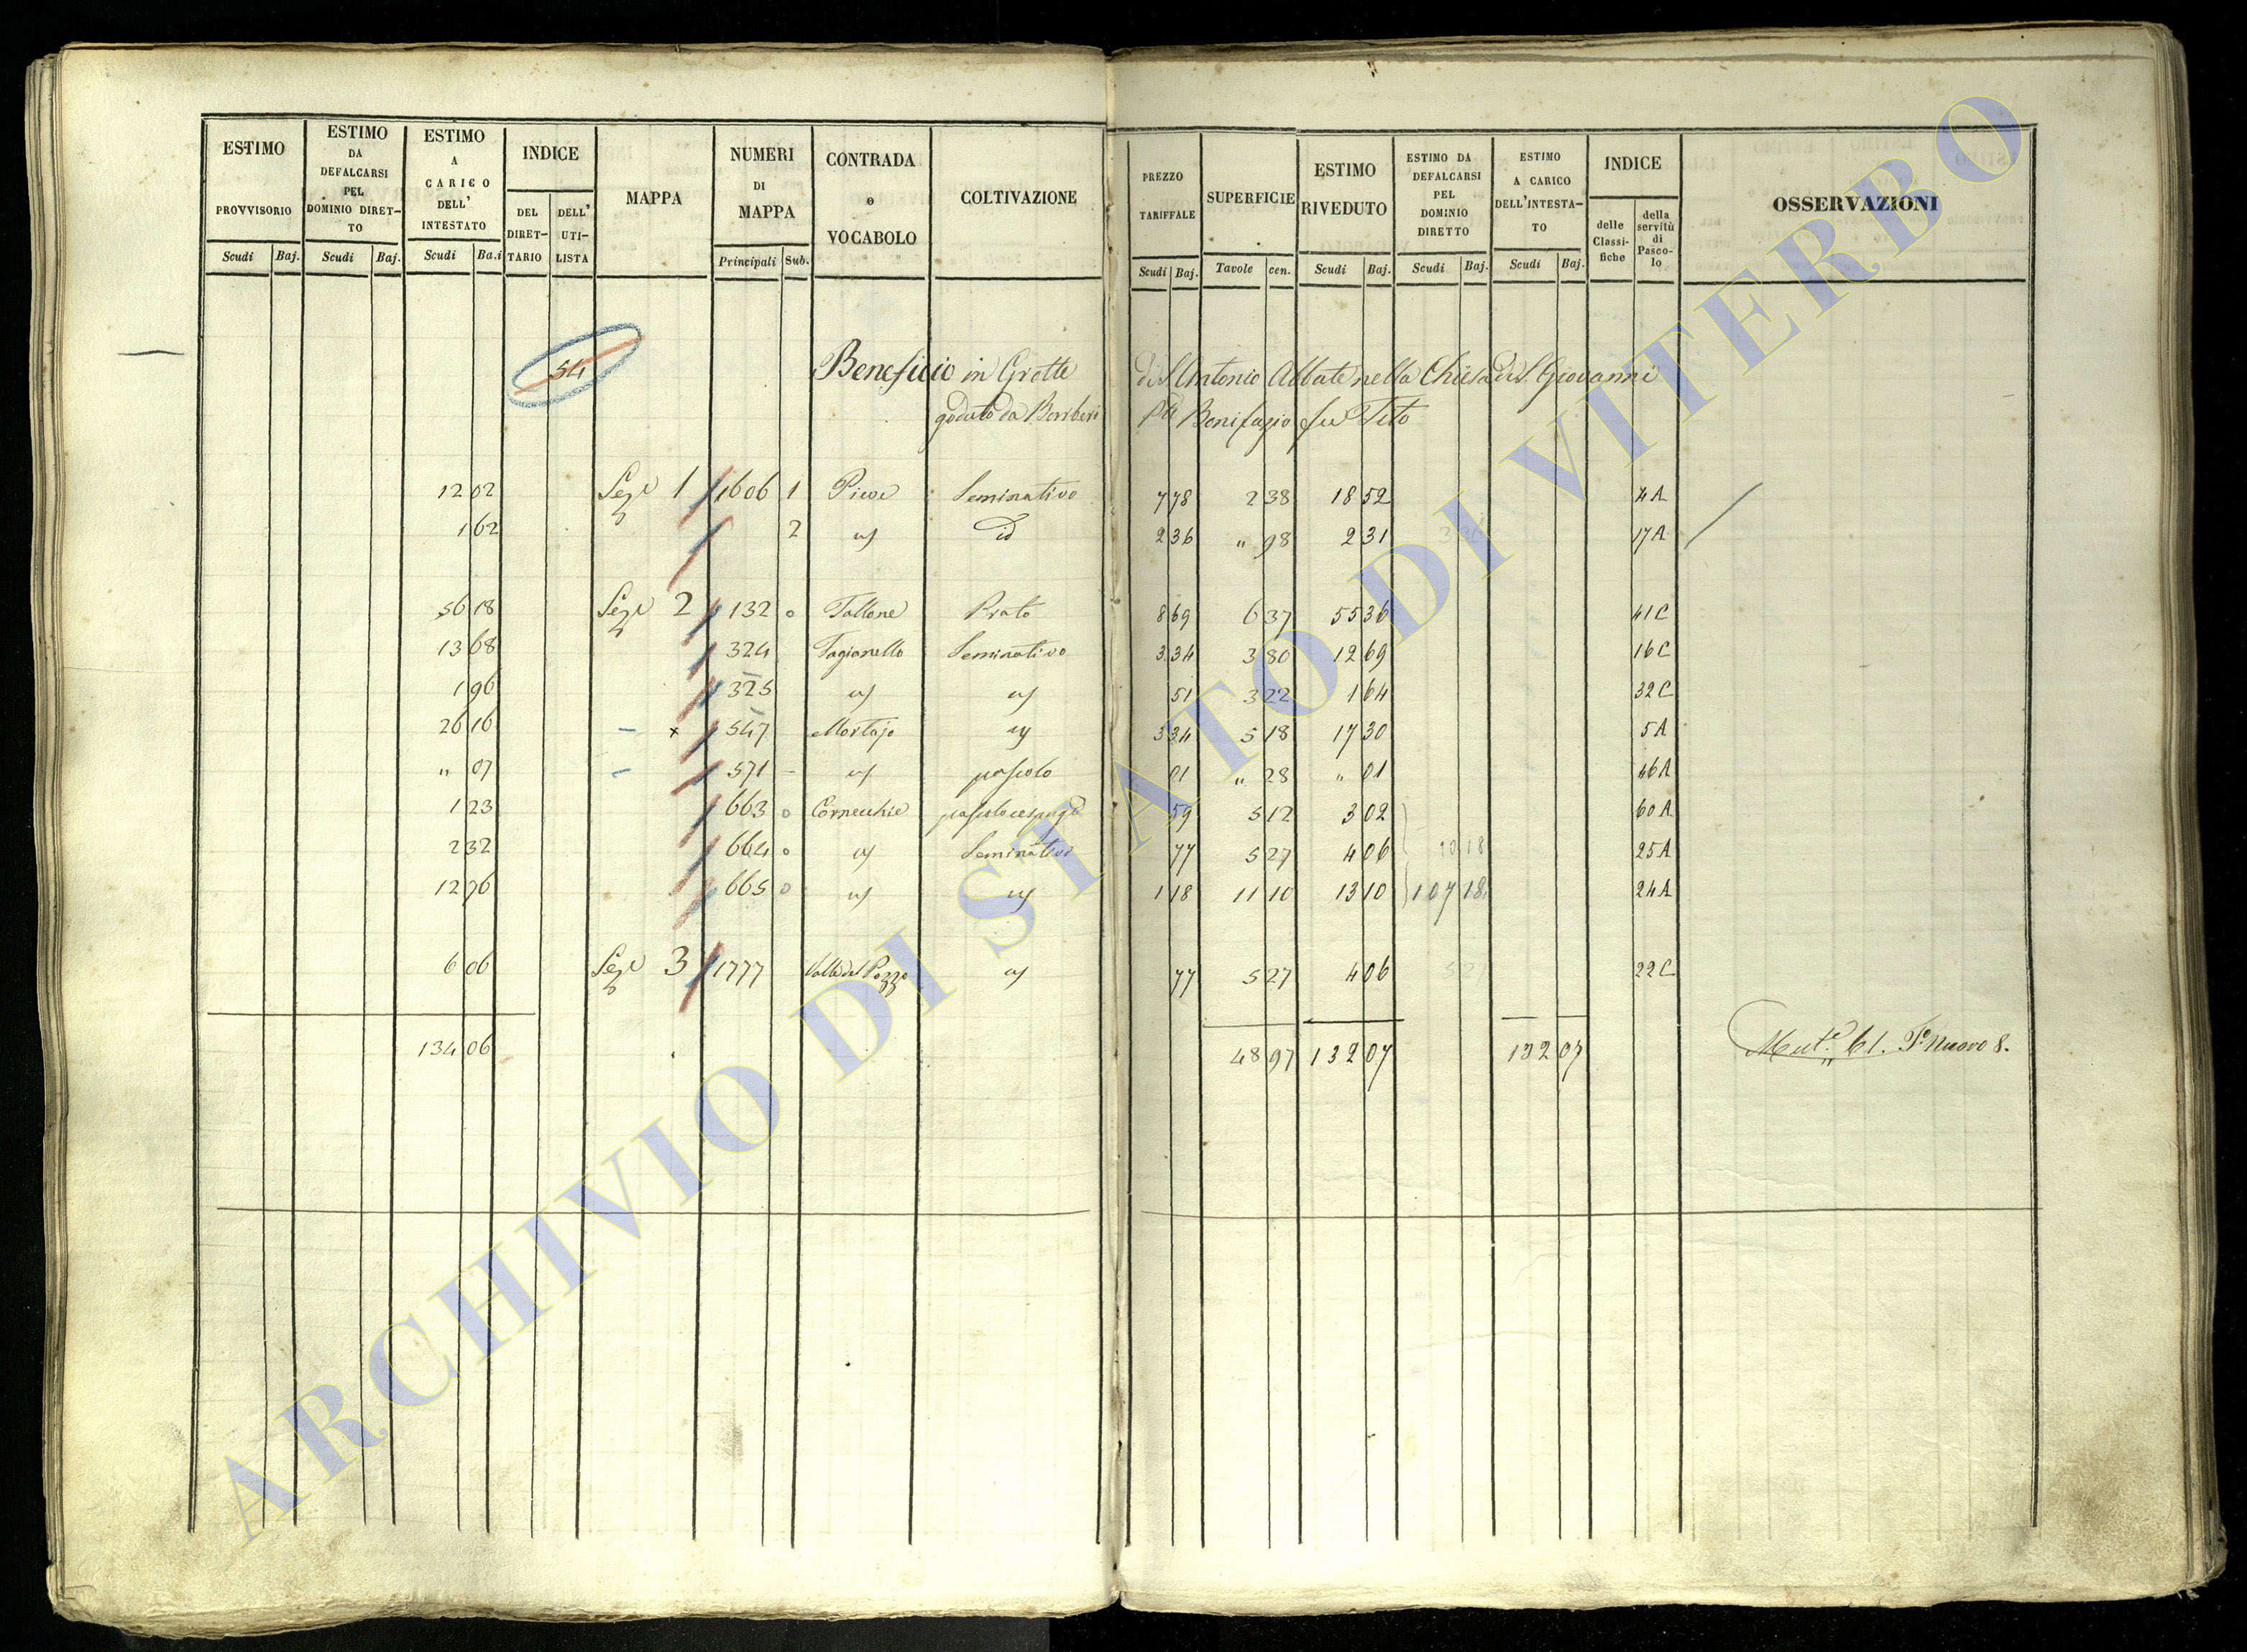 ESTIMO PROVVISORIO | ESTIMO DA DEFALCARSI PEL DOMINIO DIRET- TO | ESTIMO A CARICO DELL' INTESTATO | INDICE | MAPPA | NUMERI DI MAPPA | CONTRADA o VOCABOLO | COLTIVAZIONE | PREZZO TARIFFALE | SUPERFICIE | ESTIMO RIVEDUTO | ESTIMO DA DEFALCARSI PEL DOMINIO DIRETTO | ESTIMO A CARICO DELL'INTESTA- TO | INDICE | OSSERVAZIONI
DEL DIRET- TARIO | DELL' UTI- LISTA | delle Classi- fiche | della servitù di Pasco- lo
Scudi | Baj. | Scudi | Baj. | Scudi | Ba.i | Principali | Sub. | Scudi | Baj. | Tavole | cen. | Scudi | Baj. | Scudi | Baj. | Scudi | Baj.
54 Beneficio in Grotte di S. Antonio Abbate nella Chiesa di S. Giovanni
goduto da Barberi Bonifazio fu Tito
12 02 | 1 | 1606 | 1 | Pieve | Seminativo | 7 78 | 2 38 | 18 52 | 4A
1 62 | 2 | id | 2 36 | " 98 | 2 31 | 17A
56 18 | 2 | 132 | 0 | Tallone | Prato | 8 69 | 6 37 | 55 36 | 41C
13 68 | 324 | Seminativo | 3 34 | 3 80 | 12 69 | 16C
1 96 | 325 | 51 | 3 22 | 1 64 | 32C
26 16 | x | 547 | 3 34 | 5 18 | 17 30 | 5A
" 07 | 571 | pascolo | 01 | " 28 | " 01 | 46A
1 23 | 663 | 0 | Cornecchie | 59 | 5 12 | 3 02 | 60A
2 32 | 664 | 0 | Seminativo | 77 | 5 27 | 4 06 | 25A
12 76 | 665 | 0 | 1 18 | 11 10 | 13 10 | 107 18 | 24A
6 06 | 3 | 1777 | Valle del Pozzo | 77 | 5 27 | 4 06 | 22C
134 06 | 48 97 | 132 07 | 132 07 | 61. Nuovo 8.
ARCHIVIO DI STATO DI VITERBO